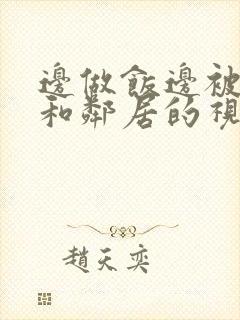 邊做飯邊被
和鄰居的視
趙天奕